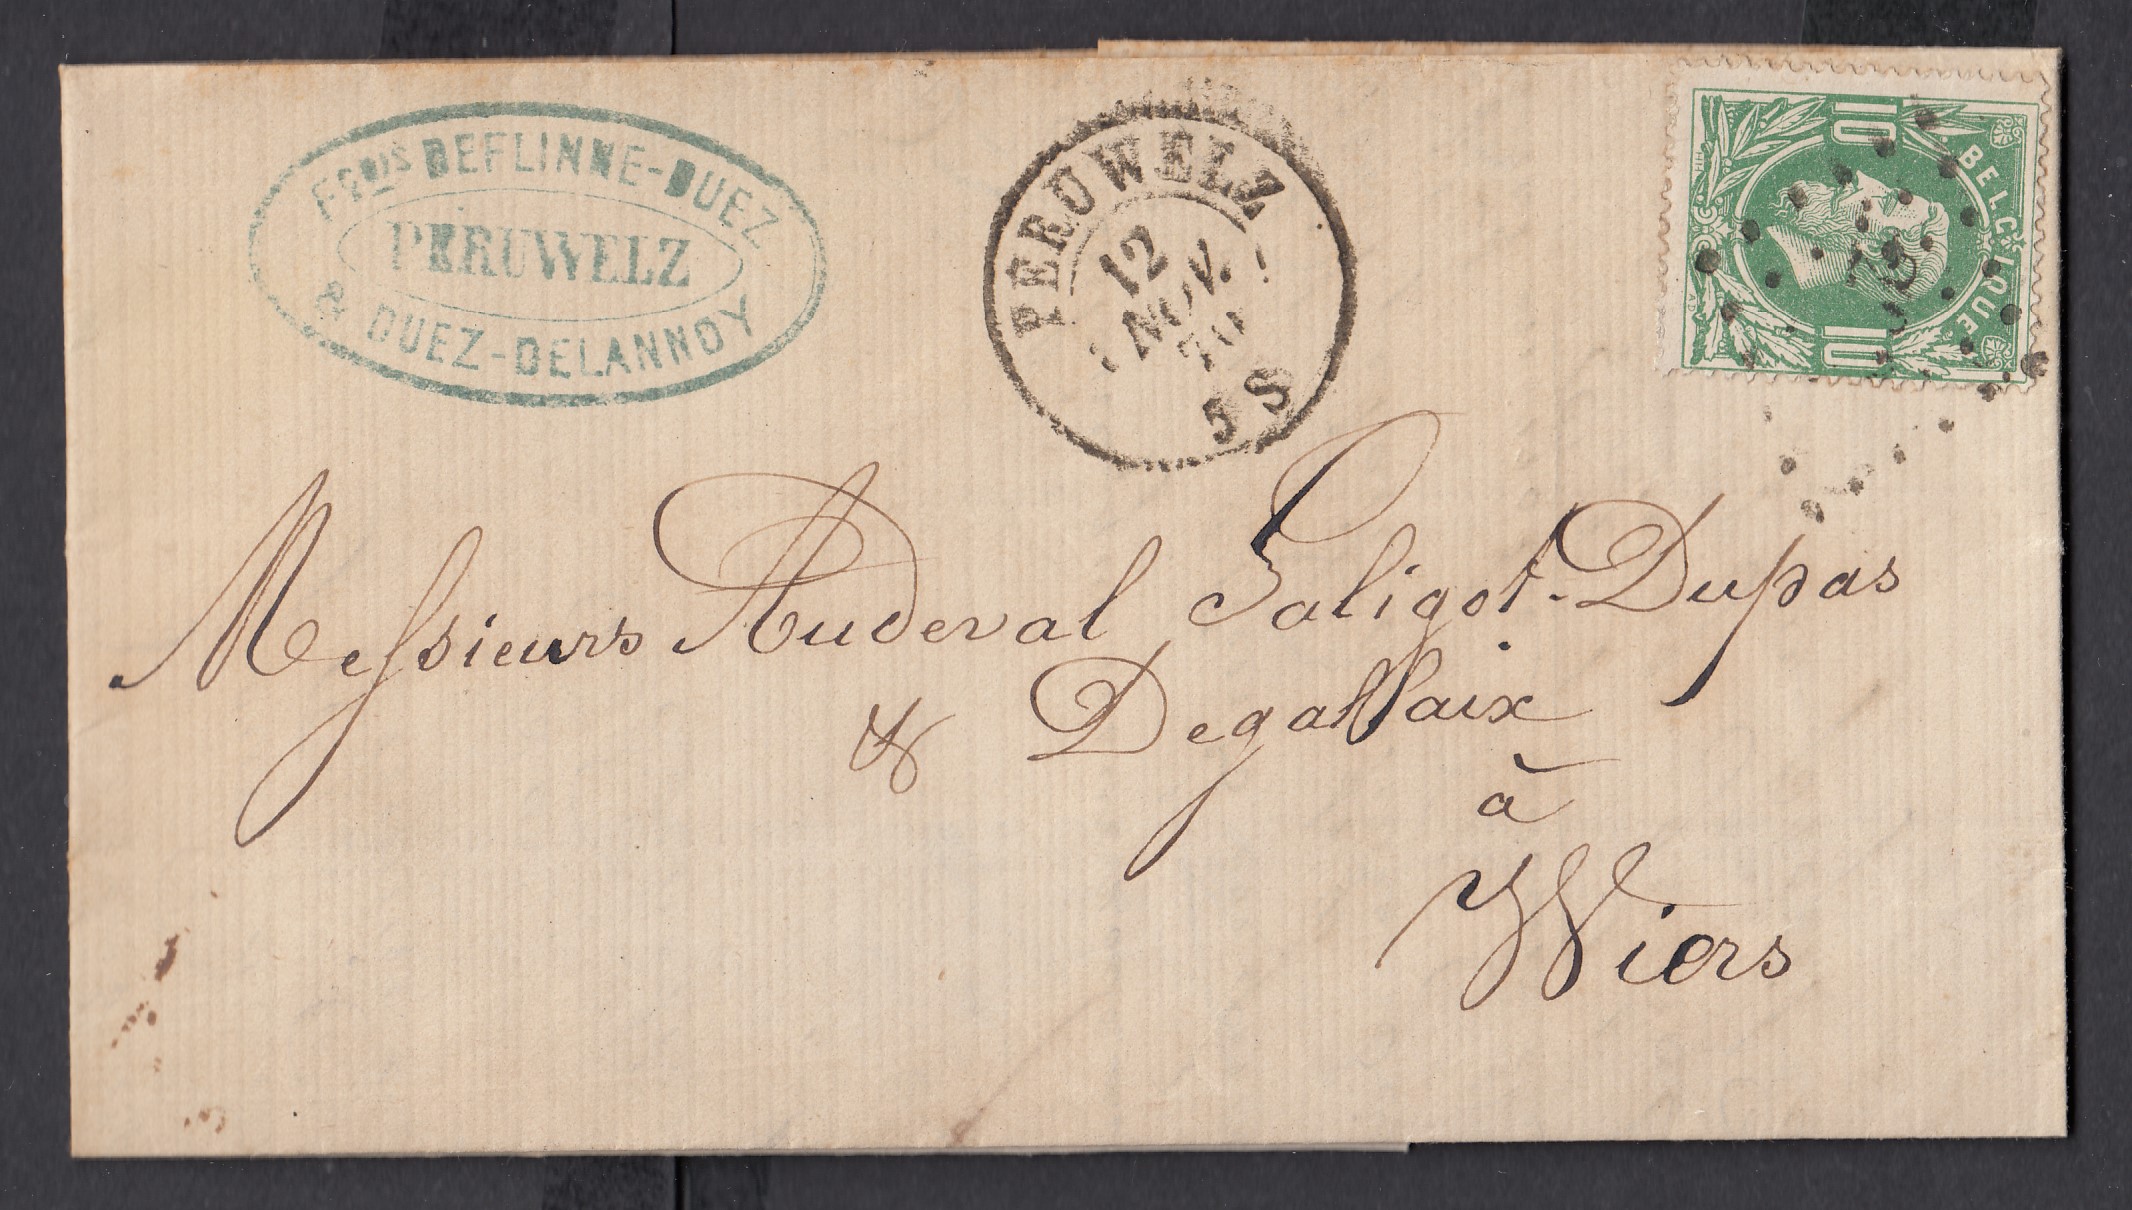 Frois DEFLINNE-DUEZ
PERUWELZ
& DUEZ-DELANNOY
PERUWELZ
12
NOV.
70
5 S
10
BELGIQUE
10
Messieurs Audeval Saligot-Dupas
& Degallaix
à
Wiers